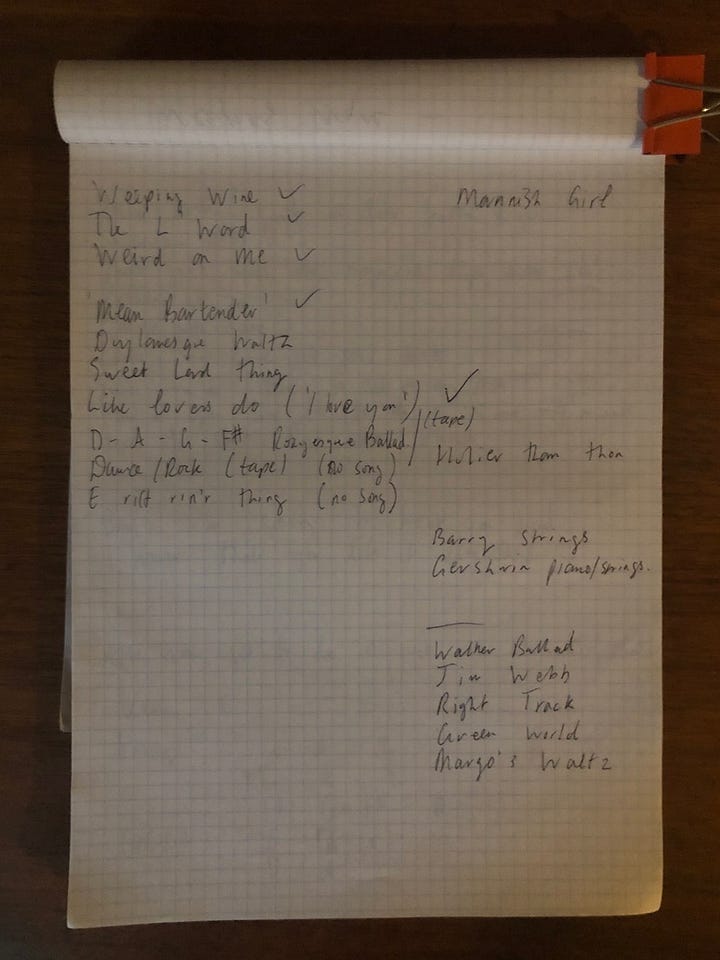 Weeping Wine ✓
The L Word ✓
Weird on Me ✓
'Mean Bartender' ✓
Dylanesque Waltz
Sweet Lord thing
Like lovers do ('I love you') ✓
D - A - G - F# Ballad (tape)
Dance/Rock (tape) (no song)
E riff thing (no song)
Mannish Girl
Holier than thou
Barry strings
Gershwin piano/strings.
Walker Ballad
Jim Webb
Right Track
Green World
Margo's Waltz